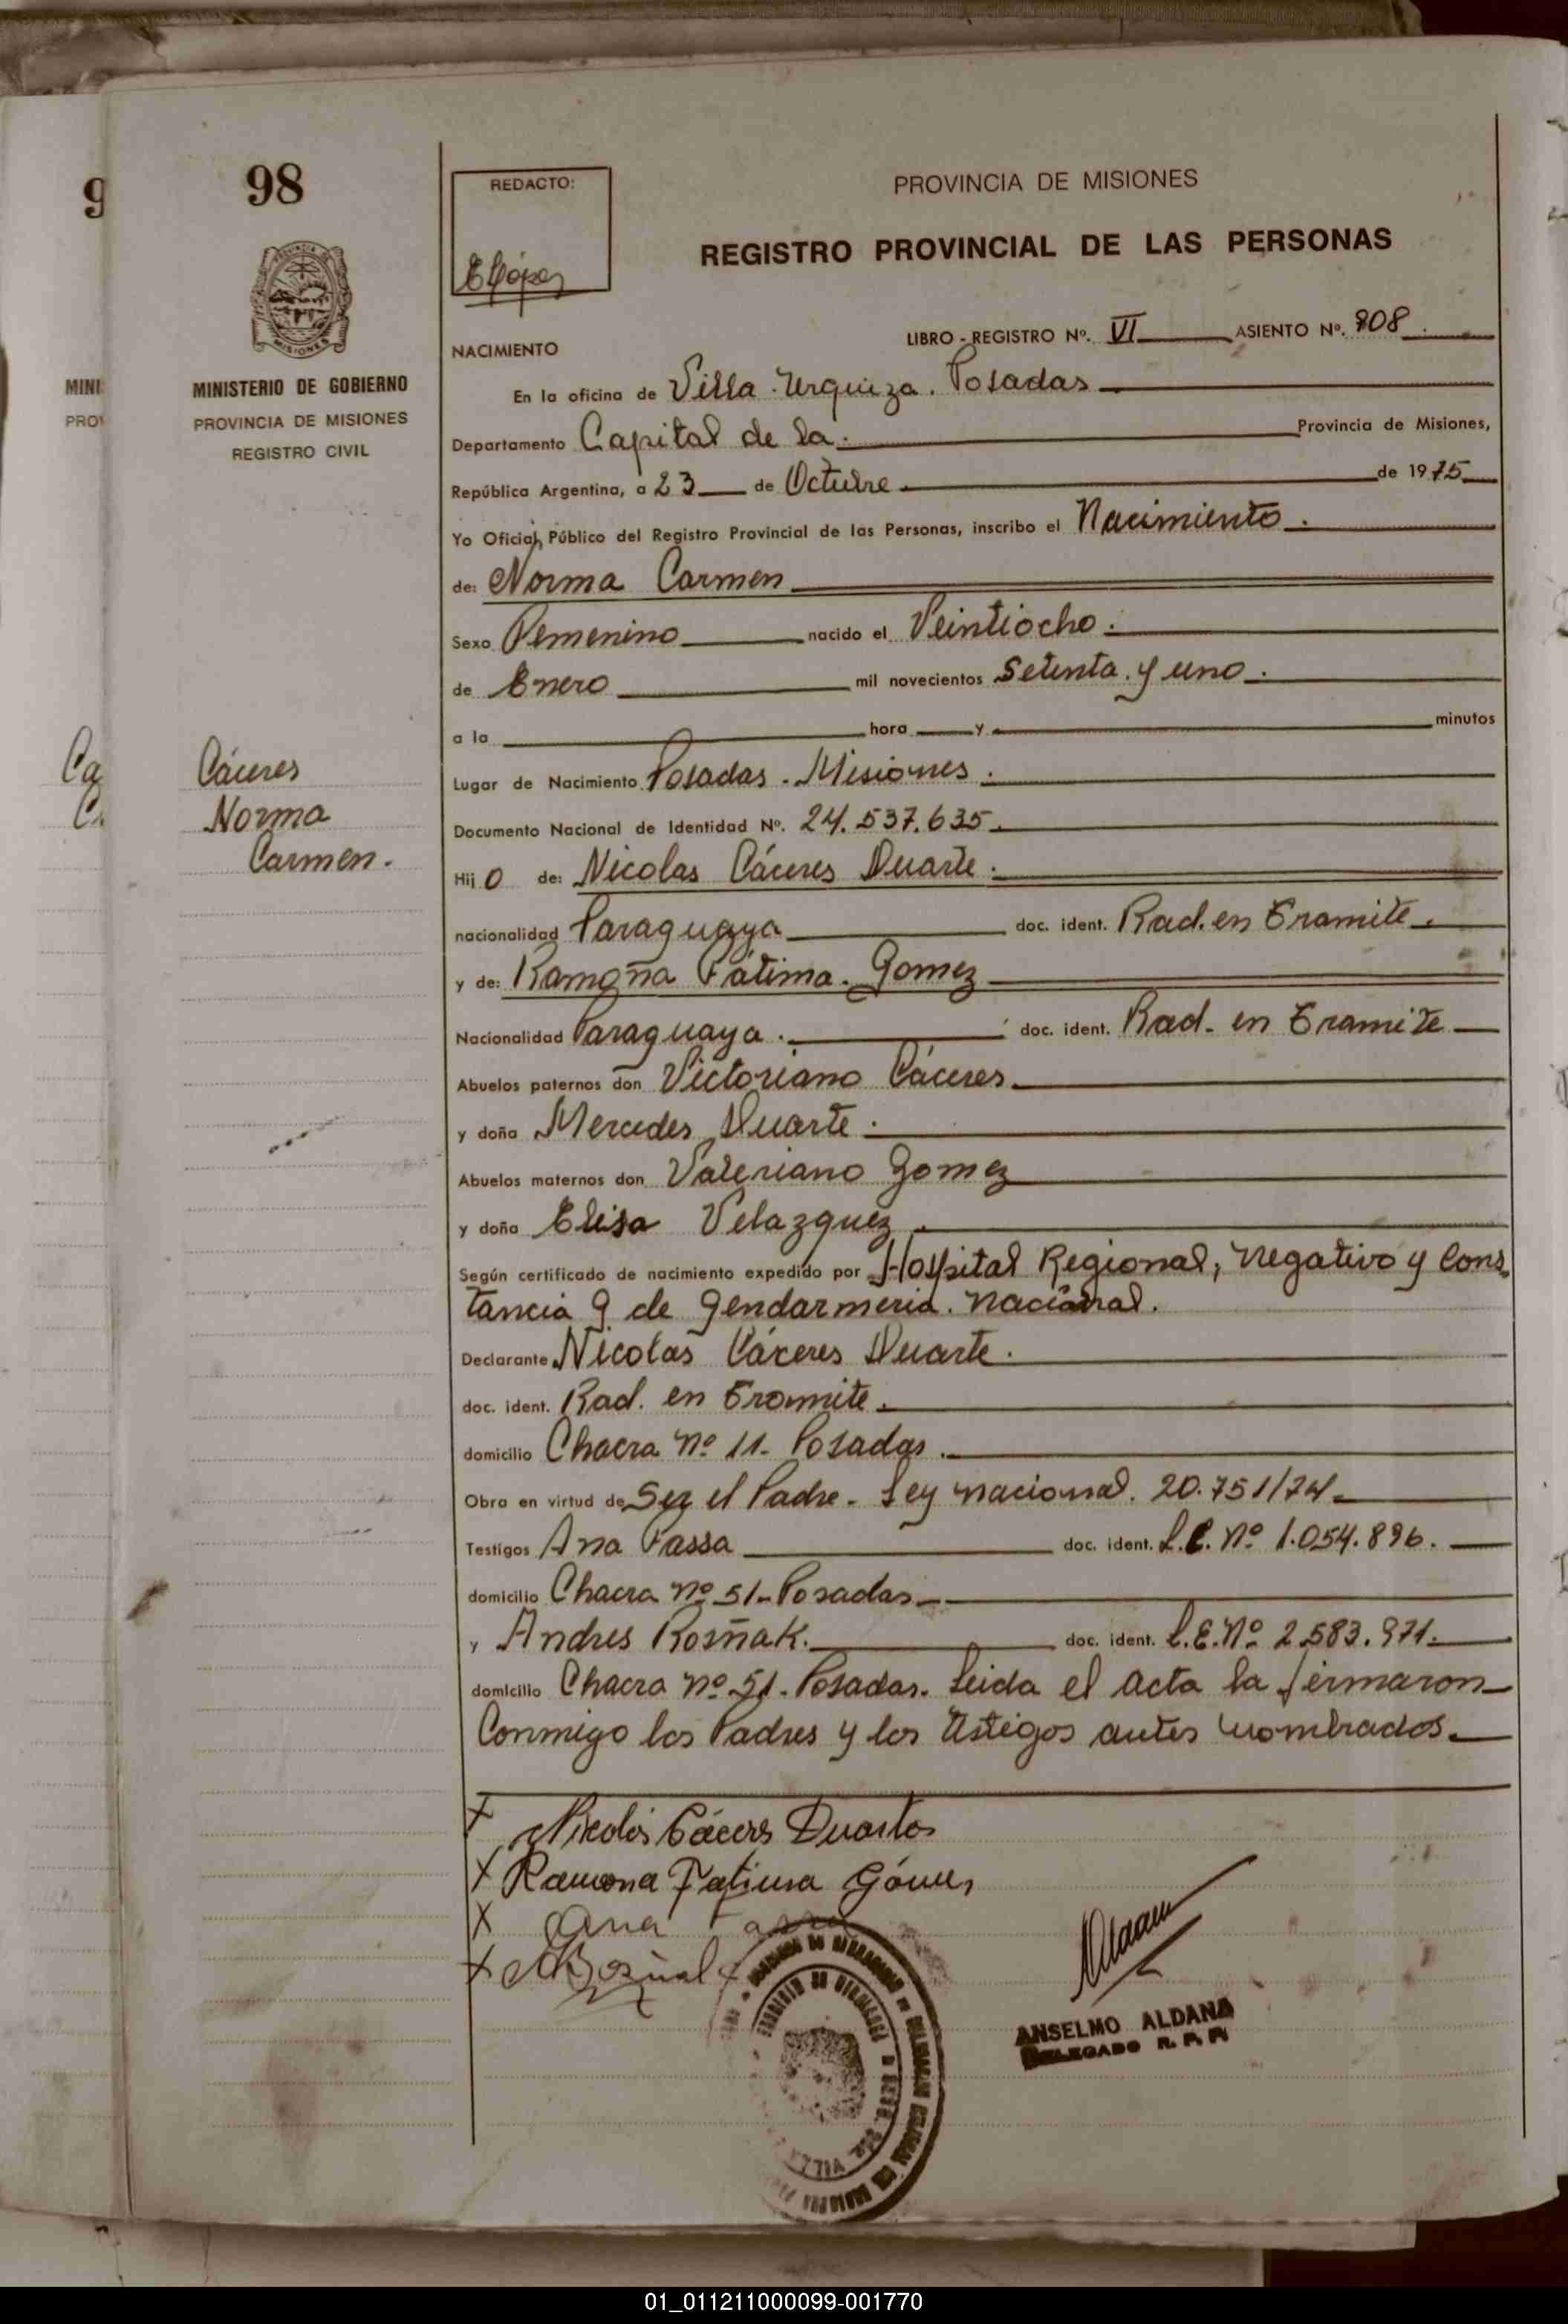 98
MINISTERIO DE GOBIERNO
PROVINCIA DE MISIONES
REGISTRO CIVIL
Cáceres
Norma
Carmen.
REDACTO:
PROVINCIA DE MISIONES
REGISTRO PROVINCIAL DE LAS PERSONAS
LIBRO - REGISTRO Nº. VI ASIENTO Nº. 908
NACIMIENTO
En la oficina de Villa Urquiza. Posadas
Departamento Capital de la. Provincia de Misiones,
República Argentina, a 23 de Octubre de 1975
Yo Oficial Público del Registro Provincial de las Personas, inscribo el Nacimiento.
de: Norma Carmen
Sexo Femenino nacido el Veintiocho.
de Enero mil novecientos Setenta y uno.
a la hora y minutos
Lugar de Nacimiento Posadas - Misiones.
Documento Nacional de Identidad Nº. 24.537.635.
Hijo de: Nicolas Cáceres Duarte.
nacionalidad Paraguaya doc. ident. Rad. en Tramite.
y de: Ramona Fátima. Gomez
Nacionalidad Paraguaya. doc. ident. Rad. en Tramite
Abuelos paternos don Victoriano Cáceres.
y doña Mercedes Duarte.
Abuelos maternos don Valeriano Gomez
y doña Elisa Velazquez.
Según certificado de nacimiento expedido por Hospital Regional, Negativo y Cons
tancia de gendarmeria. nacional.
Declarante Nicolas Cáceres Duarte.
doc. ident. Rad. en Tramite.
domicilio Chacra Nº 11. Posadas.
Obra en virtud de Ser el Padre. Ley nacional. 20.751/74
Testigos Ana Fassa doc. ident. L.C. Nº 1.054.896.
domicilio Chacra Nº 51- Posadas
y Andres Rosñak. doc. ident. L.E. Nº 2.583.971.
domicilio Chacra nº 51. Posadas. Leida el acta la firmaron
Conmigo los Padres y los testigos antes nombrados.
X Nicolás Cáceres Duarte
X Ramona Fatima Gómez
X Ana Fassa
X
ANSELMO ALDANA
DELEGADO R. P. P.
01_011211000099-001770